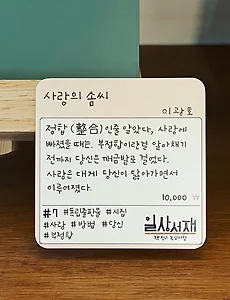 사랑의 솜씨
이광호
정합(整合)인줄 알았다, 사랑에
빠졌을 때는. 부정합이란걸 알아채기
전까지 당신은 깨금발로 걸었다.
사랑은 대게 당신이 닳아가면서
이루어졌다.
10,000 ₩
#7 #독립출판물 #시집
#사랑 #방법 #당신
#부정합
일상서재